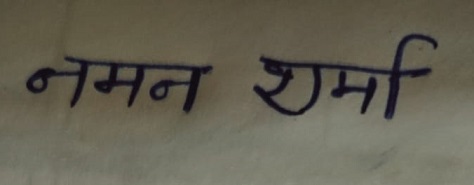 नमन शर्मा